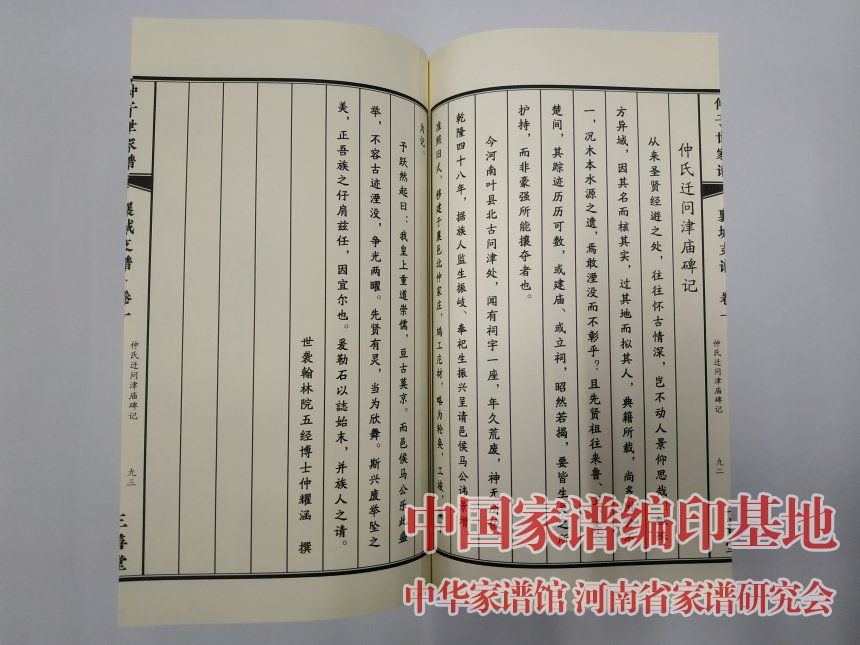 仲氏迁问津庙碑记
从来圣贤经遊之处，往往怀古情深，岂不动人景仰思哉
方异域，因其名而核其实，过其地而拟其人，典籍所载，尚多
一，况木本水源之遗，焉敢湮没而不彰乎？且先贤祖往来鲁、
楚间，其踪迹历历可数，或建庙、或立祠，昭然若揭，要皆生
护持，而非豪强所能攘夺者也。
今河南叶县北古问津处，闻有祠宇一座，年久荒废，神无
乾隆四十八年，据族人监生振岐、奉祀生振兴呈请邑侯马公讳
准照旧式，移建于襄邑北仲家庄，鸠工庀材，略为轮奂，工竣，
为记。
予跃然起曰：我皇上重道崇儒，亘古莫京。而邑侯马公乐此盛
举，不容古迹湮没，争光两曜。先贤有灵，当为欣舞。斯兴废举坠之
美，正吾族之仔肩兹任，因宜尔也。爰勒石以誌始末，并族人之请。
世袭翰林院五经博士仲耀涵 撰
仲氏迁问津庙碑记
九二
仲子世家谱
襄城支谱·卷一
仲氏迁问津庙碑记
九三
三善堂
中国家谱编印基地
中华家谱馆 河南省家谱研究会